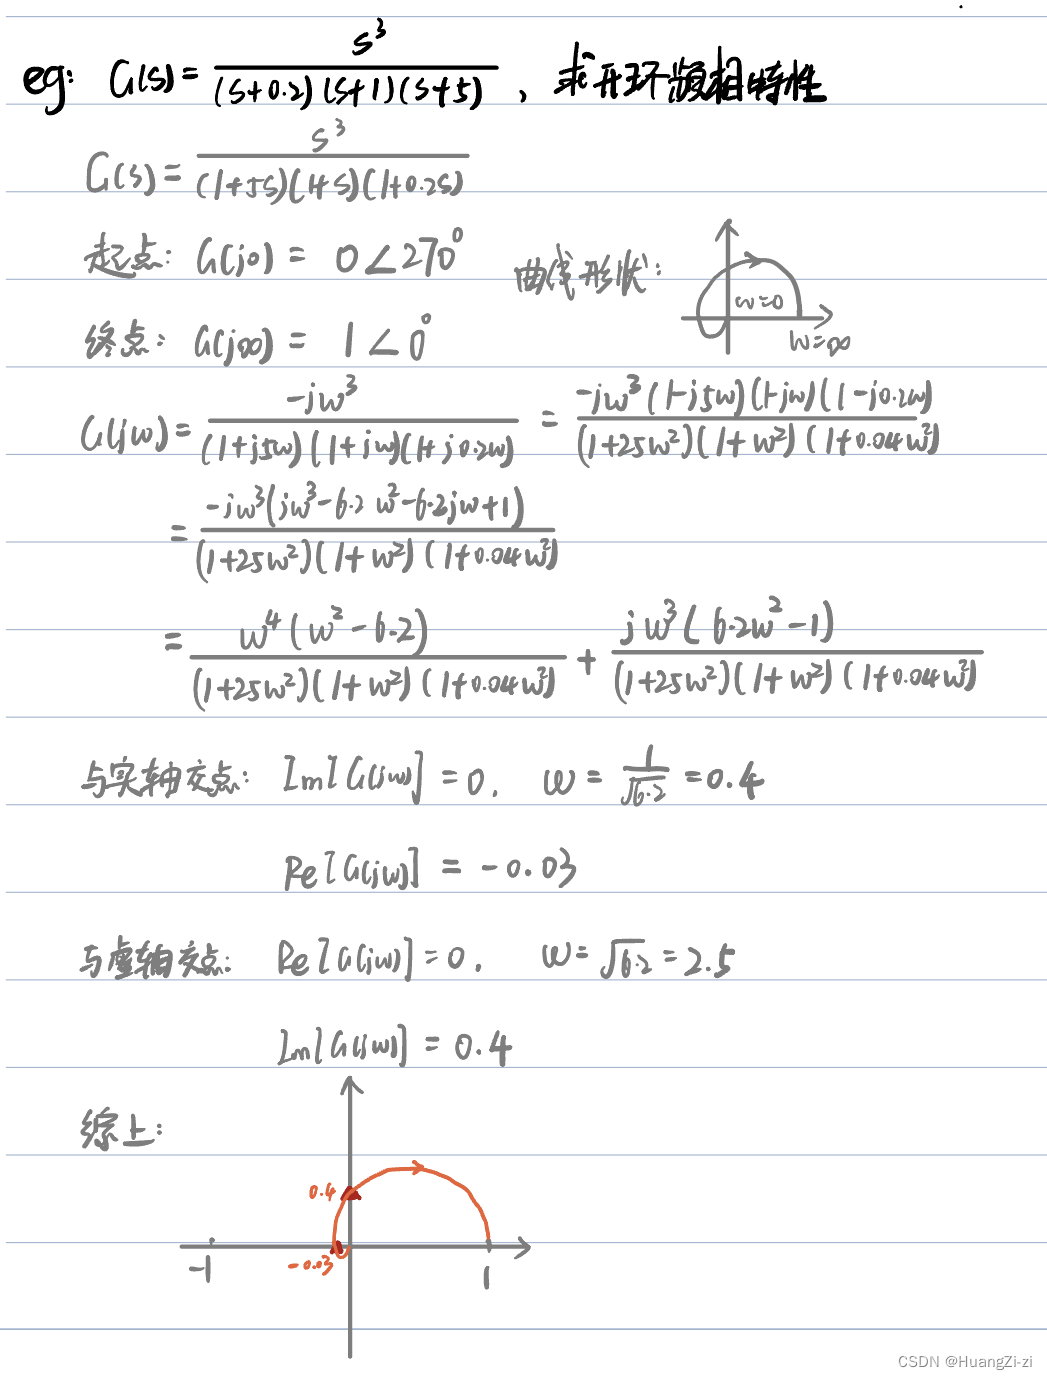 eg: G(s) = s³ / (s+0.2)(s+1)(s+5) , 求开环频相特性
G(s) = s³ / (1+5s)(1+s)(1+0.2s)
起点: G(j0) = 0∠270°
曲线形状:
w=0
w=∞
终点: G(j∞) = 1∠0°
G(jw) = -jw³ / (1+j5w)(1+jw)(1+j0.2w) = -jw³(1-j5w)(1-jw)(1-j0.2w) / (1+25w²)(1+w²)(1+0.04w²)
= -jw³(jw³-6.2w²-6.2jw+1) / (1+25w²)(1+w²)(1+0.04w²)
= w⁴(w²-6.2) / (1+25w²)(1+w²)(1+0.04w²) + jw³(6.2w²-1) / (1+25w²)(1+w²)(1+0.04w²)
与实轴交点: Im[G(jw)] = 0, w = 1/√6.2 = 0.4
Re[G(jw)] = -0.03
与虚轴交点: Re[G(jw)] = 0, w = √6.2 = 2.5
Im[G(jw)] = 0.4
综上:
0.4
-1
-0.03
1
CSDN @HuangZi-zi